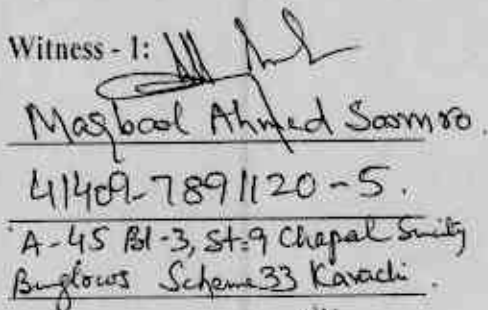 Witness - 1:
Maqbool Ahmed Soomro.
41409-7891120-5.
A-45 Bl-3, St:9 Chapal
Buglows Scheme 33 Karachi.